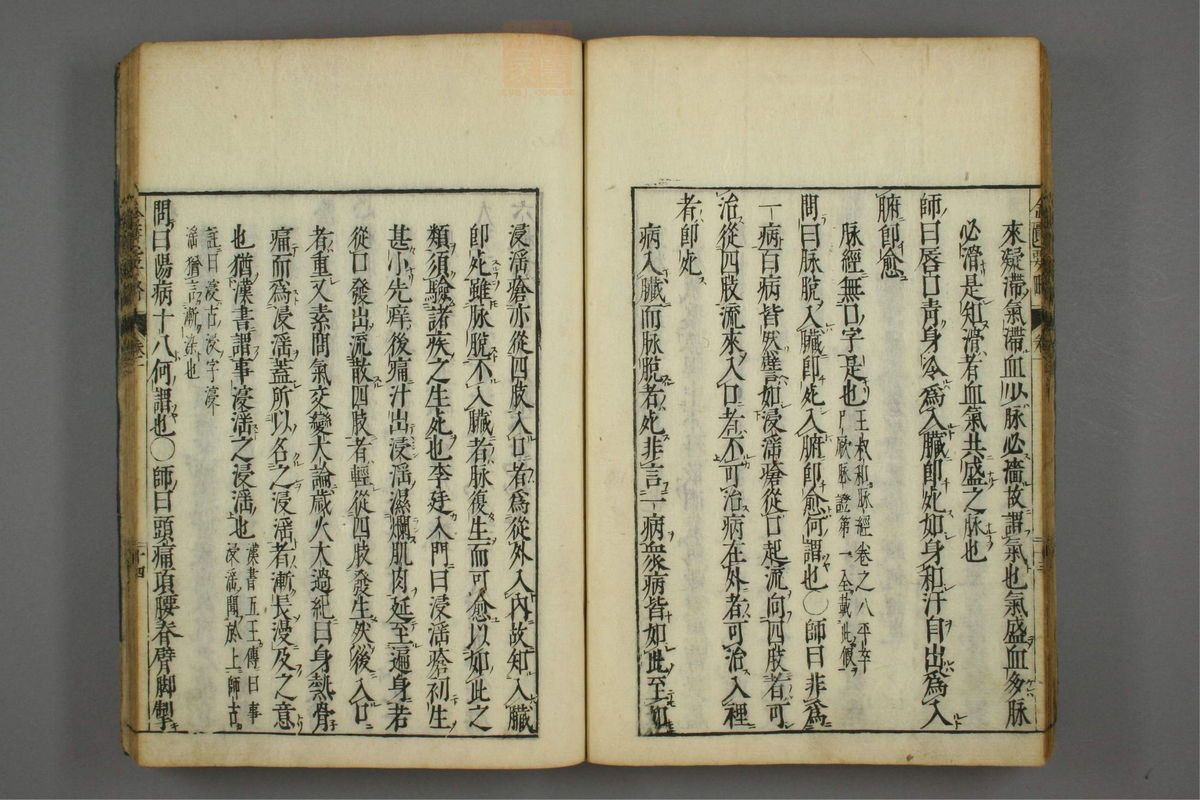 來疑滯氣滯血少脉必濇故謂氣也氣盛血多脉
必滑是知滑者血氣共盛之脉也
師曰唇口青身冷爲入臟即死如身和汗自出爲入
腑即愈
脉經無口字是也王叔和脉經卷之八平卒
尸厥脉證第一全載此條
問曰脉脫入臟即死入腑即愈何謂也〇師曰非爲
一病百病皆然譬如浸淫瘡從口起流向四肢者可
治從四肢流來入口者不可治病在外者可治入裡
者即死
病入臟而脉脫者死非言一病衆病皆如此至如
浸淫瘡亦從四肢入口者爲從外入內故知入臟
即死雖脉脫不入臟者脉復生而可愈以如此之
類須驗諸疾之生死也李廷入門曰浸淫瘡初生
甚小先痒後痛汁出浸淫濕爛肌肉延至遍身若
從口發出流散四肢者輕從四肢發生然後入口
者重又素問氣交變大論歲火太過紀曰身熱骨
痛而爲浸淫蓋所以名之浸淫者漸長漫及之意
也猶漢書謂事寖淫之浸淫也漢書五王傳曰事
寖淫聞於上師古
註曰寖古浸字寖
淫猶言漸染也
問曰陽病十八何謂也〇師曰頭痛項腰脊臂脚掣